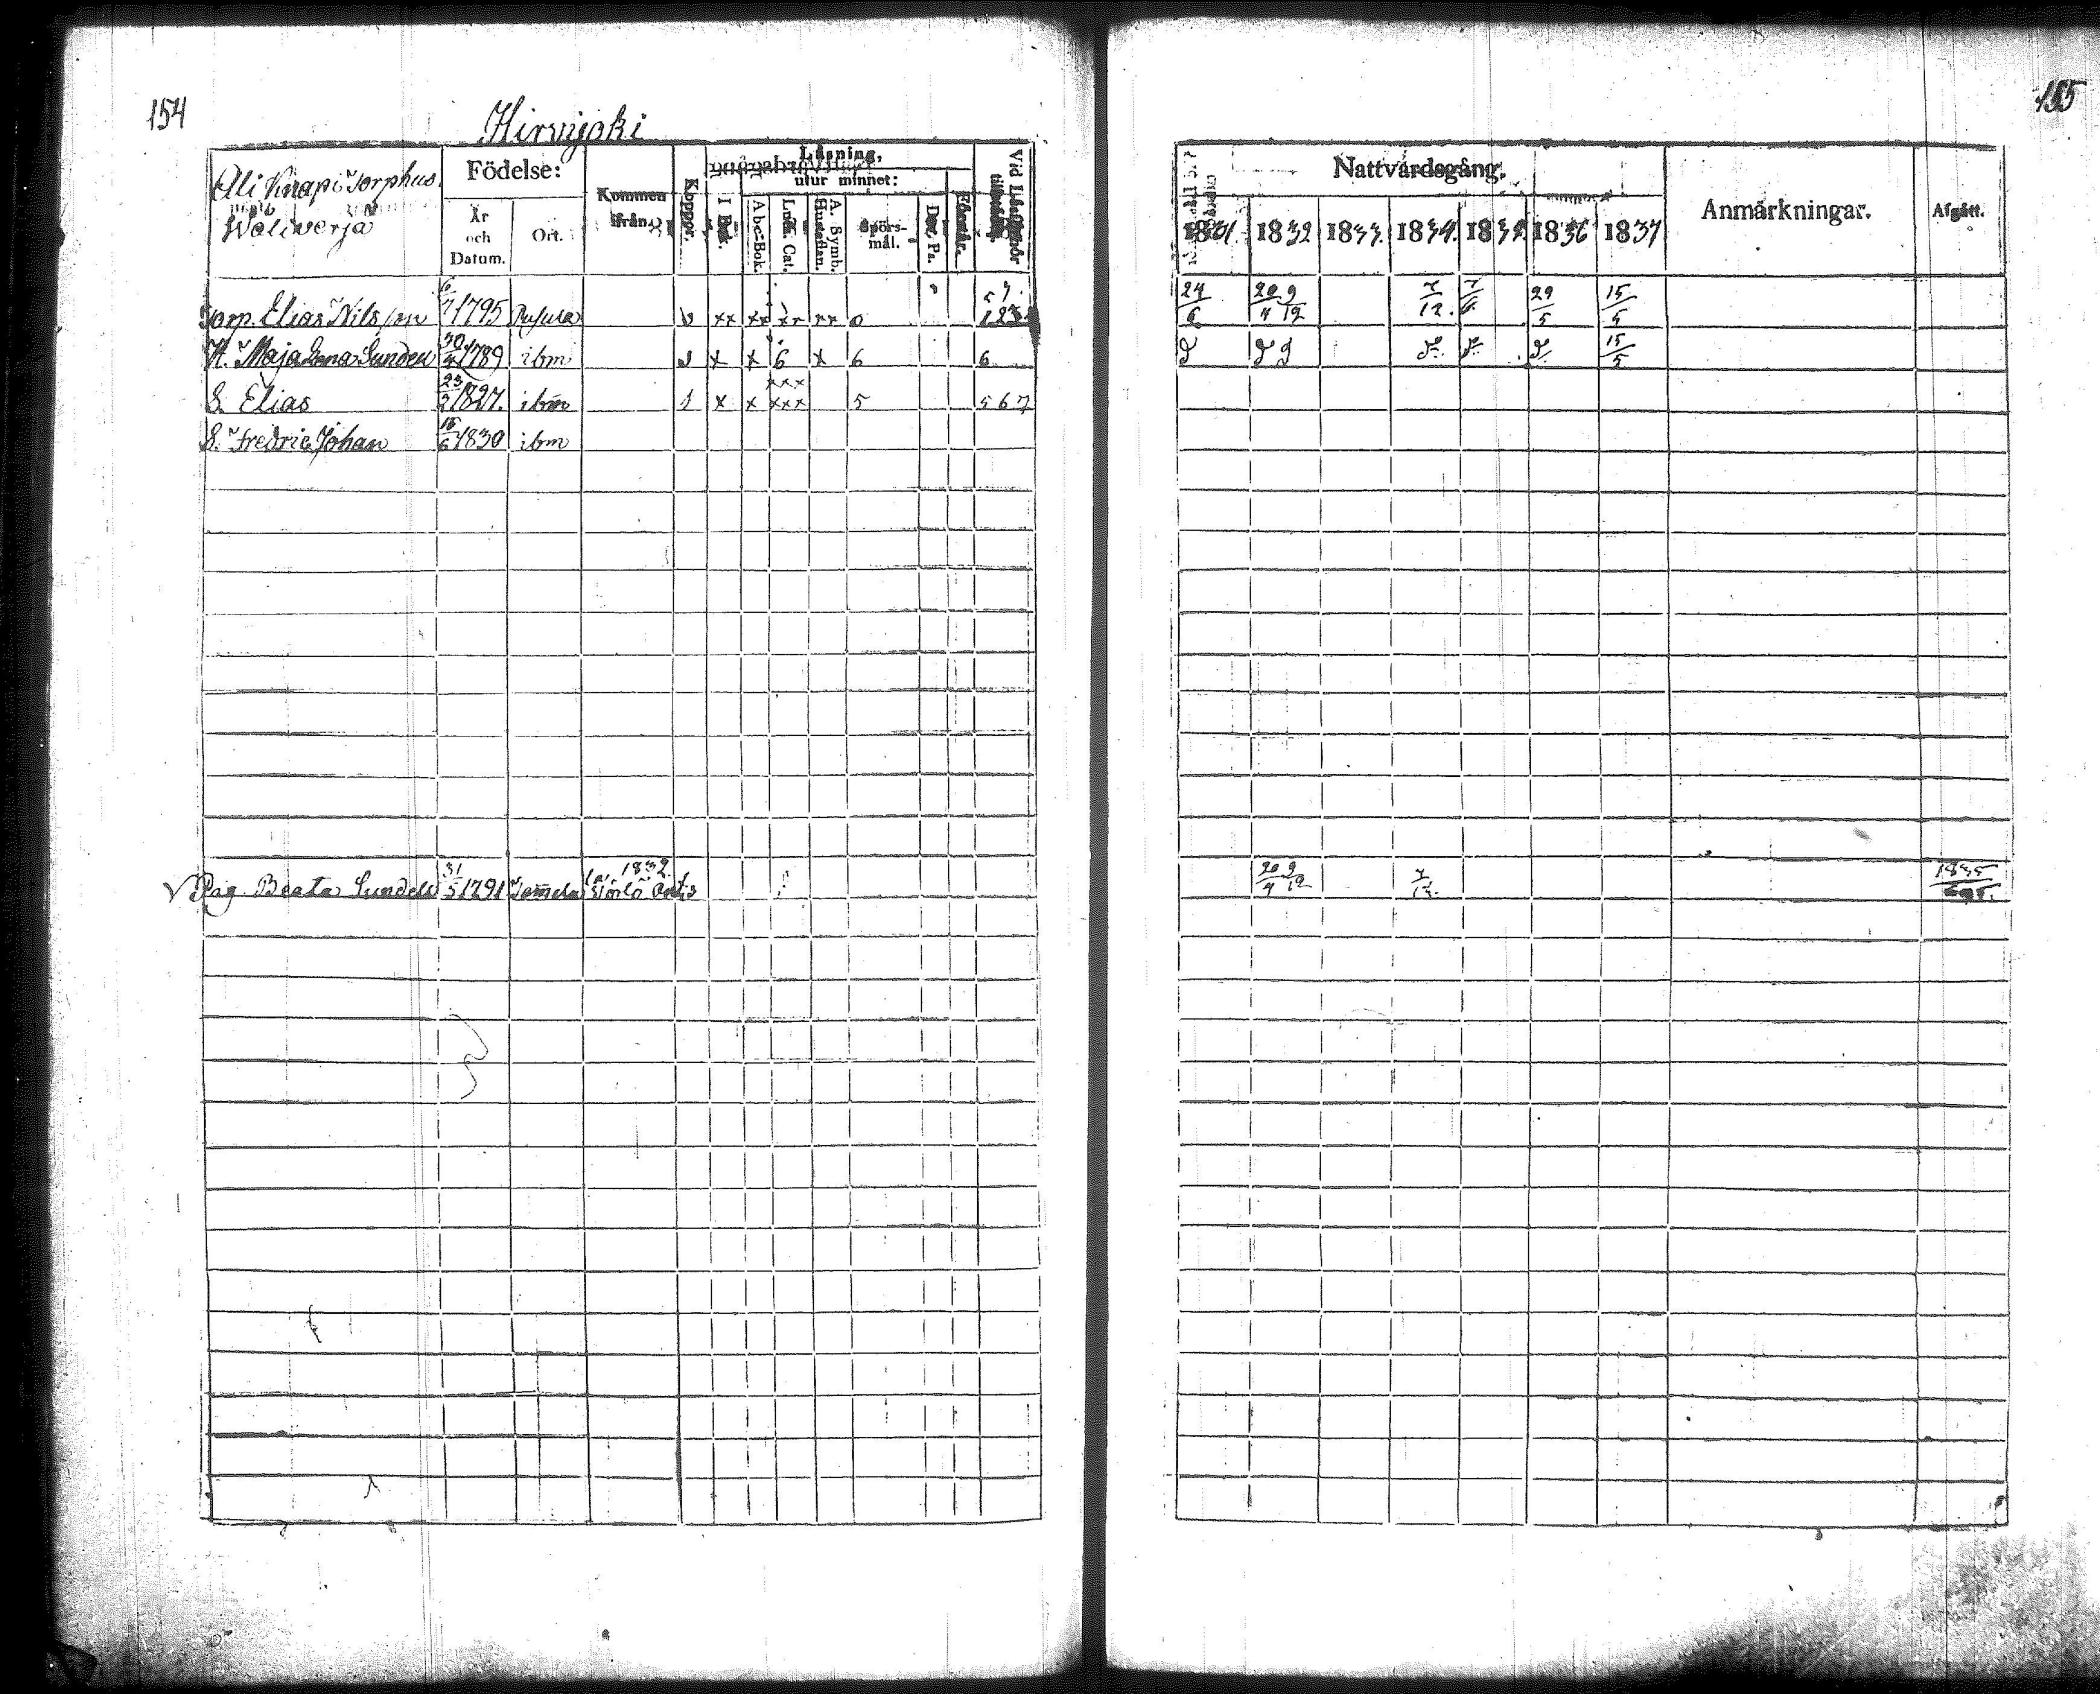 154
Hirvijoki
Ali Knapi Torphus.
Wäliverjä
Födelse:
År och Datum.
Ort.
Kommen ifrån.
Koppor.
Läsning,
I Bok.
utur minnet:
Abc-Bok.
Luth. Cat.
A. Symb. Hustaflan.
Spörs-mål.
Dav. Ps.
Förstår.
Vid Läseförhör tillstädes.
Torp. Elias Nilsson 6/7 1795 Rusula v xx xx xx xx 0 5 7. 123.
H. Maja Lena Sundell 30/4 1789 ibm v x x 6 x 6 6
S. Elias 23/2 1827. ibm 1 x x xxx xxx 5 5 6 7
S. Fredric Johan 15/6 1830 ibm
√ Pig. Beata Sundell 31/5 1791 Tammela 1832
155
Nattvardsgång.
1831. 1832 1833. 1834. 1835. 1836 1837
Anmärkningar.
Afgått.
24/6 20/4 9/12 7/12. 7/6 29/5 15/5
D D D D. D. D. 15/5
20/4 9/12 7/12. 1835